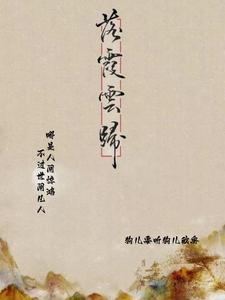 落霞雲歸
哪是人间惊鸿
不过世间凡人
狗儿要听狗儿敌桑